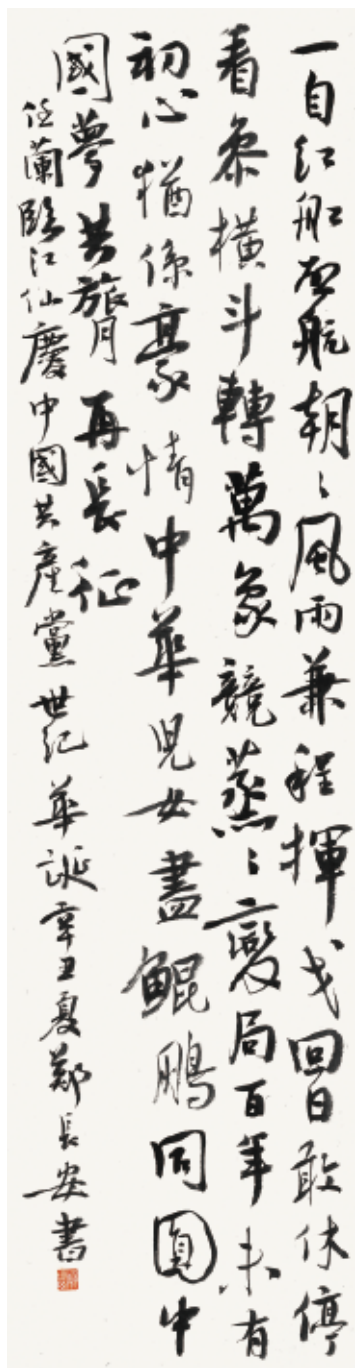 一自紅船启航朝々風雨兼程揮戈回日敢休停
看參橫斗轉萬象競蒸々變局百年未有
初心猶係豪情中華兒女盡鯤鵬同圓中
國夢共膂再長征
任蘭臨江仙慶中國共產黨世紀華誕辛丑夏鄭長安書